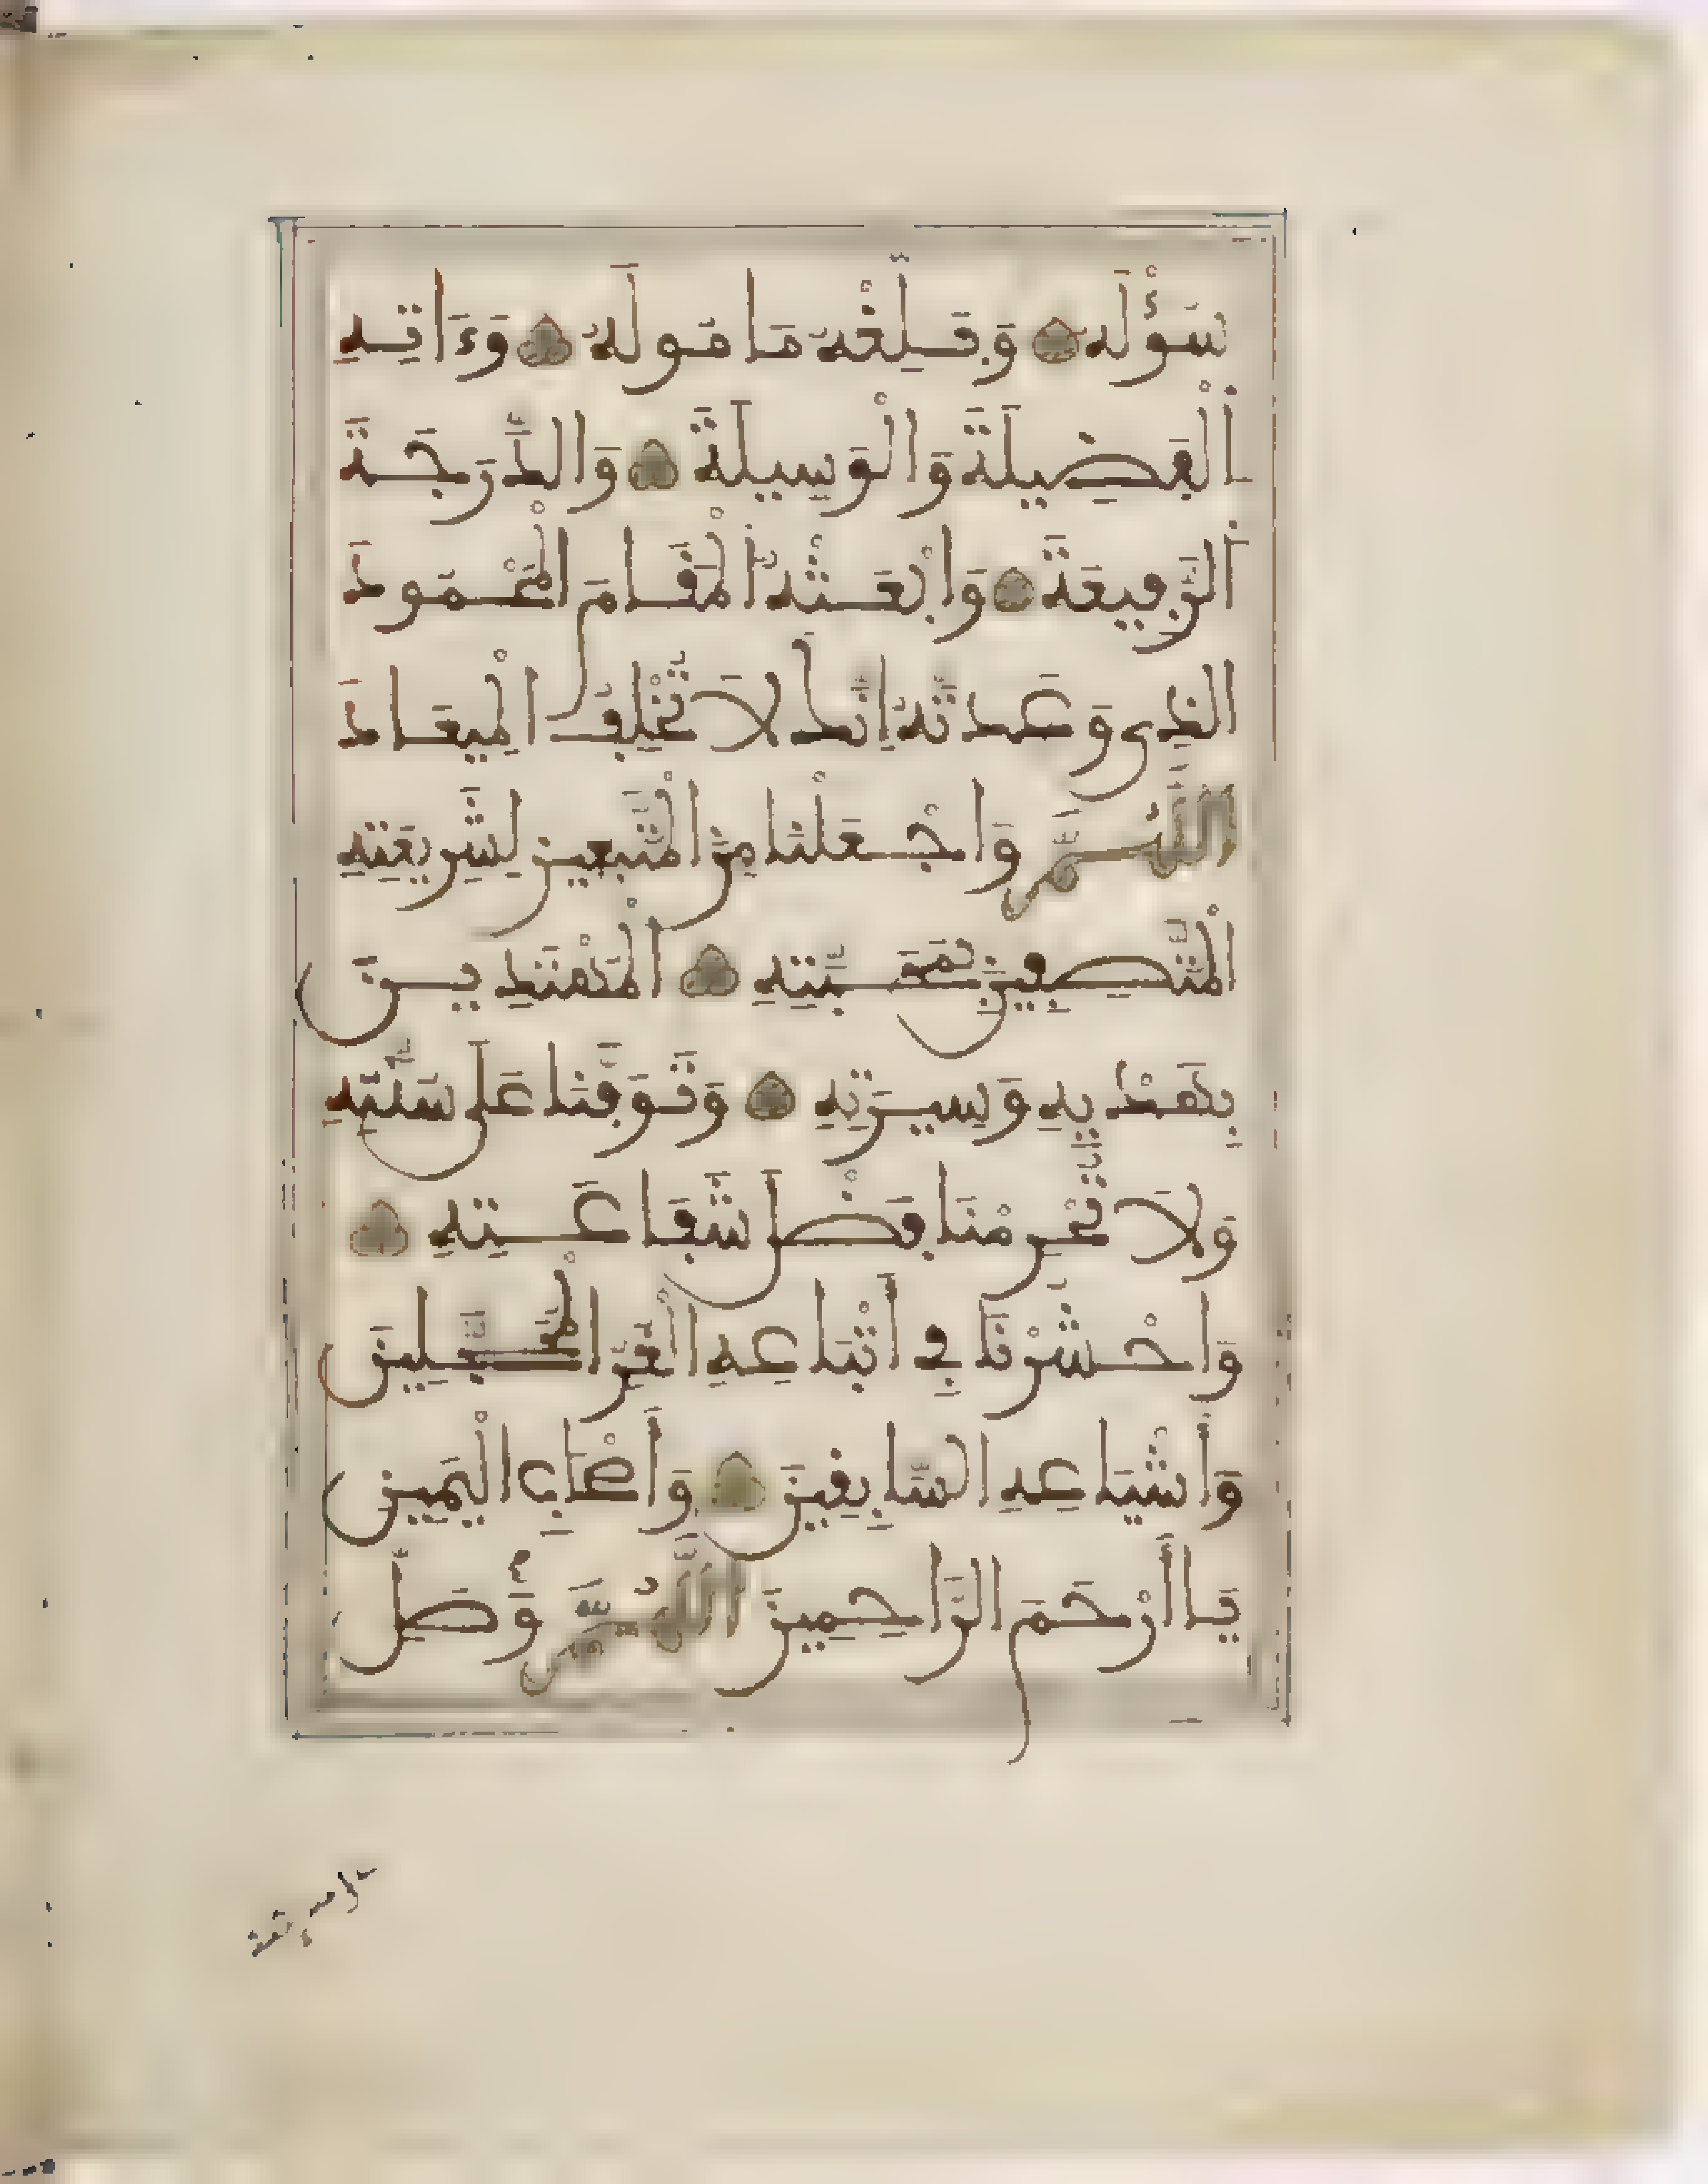 سُؤْلَهُ وَبَلِّغْهُ مَامُولَهُ وَءَاتِهِ
الْفَضِيلَةَ وَالْوَسِيلَةَ وَالدَّرَجَةَ
الرَّفِيعَةَ وَابْعَثْهُ الْمَقَامَ الْمَحْمُودَ
الذِي وَعَدتَّهُ إِنَّكَ لَا تُخْلِفُ الْمِيعَادَ
اللَّهُمَّ وَاجْعَلْنَا مِنَ الْمُتَّبِعِينَ لِشَرِيعَتِهِ
الْمُتَّصِفِينَ بِمَحَبَّتِهِ الْمُهْتَدِينَ
بِهَدْيِهِ وَسِيرَتِهِ وَتَوَفَّنَا عَلَى سُنَّتِهِ
وَلَا تَحْرِمْنَا فَضْلَ شَفَاعَتِهِ
وَاحْشُرْنَا فِي أَتْبَاعِهِ الْغُرِّ الْمُحَجَّلِينَ
وَأَشْيَاعِهِ السَّابِقِينَ وَأَصْحَابِ الْيَمِينِ
يَا أَرْحَمَ الرَّاحِمِينَ اللَّهُمَّ وَصَلِّ